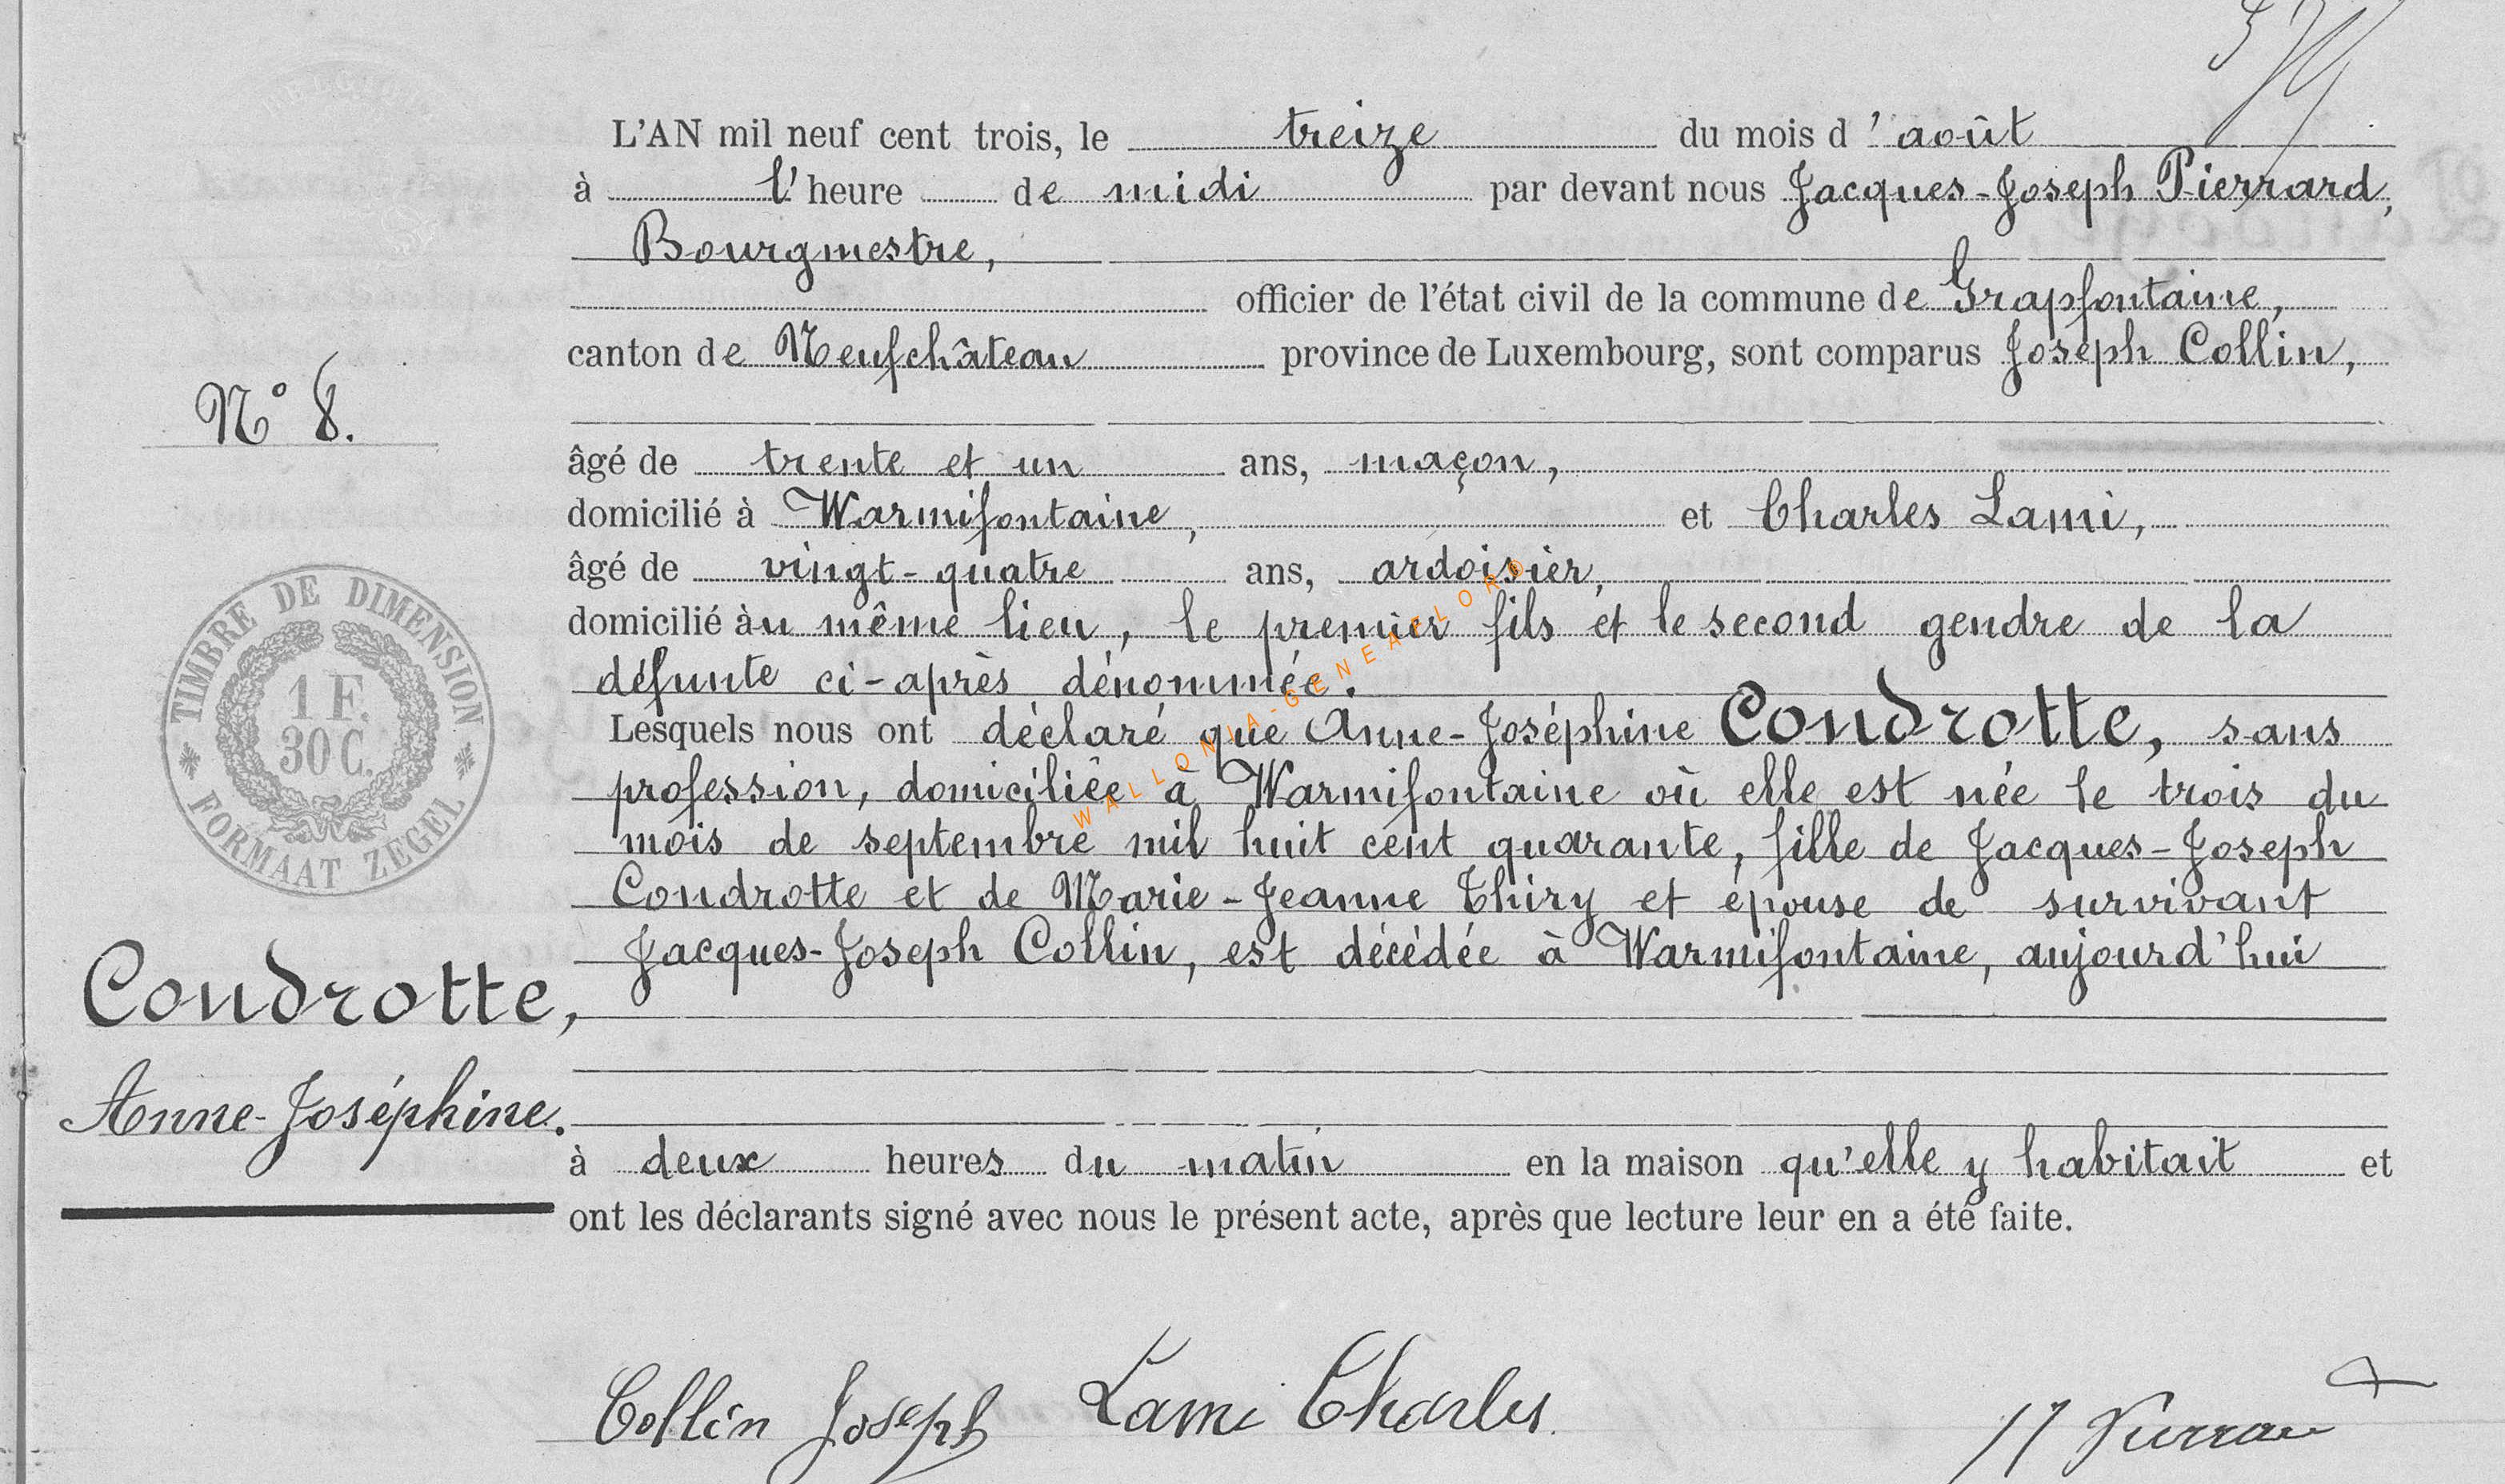 L'AN mil neuf cent trois, le treize du mois d'août
à l'heure de midi par devant nous Jacques-Joseph Pierrard,
Bourgmestre,
officier de l'état civil de la commune de Grapfontaine,
canton de Neufchâteau province de Luxembourg, sont comparus Joseph Collin,
N° 8.
âgé de trente et un ans, maçon,
domicilié à Warmifontaine, et Charles Lami,
âgé de vingt-quatre ans, ardoisier,
domicilié àu même lieu, le premier fils et le second gendre de la
défunte ci-après dénommée.
Lesquels nous ont déclaré que Anne-Joséphine Condrotte, sans
profession, domiciliée à Warmifontaine où elle est née le trois du
mois de septembre mil huit cent quarante, fille de Jacques-Joseph
Condrotte et de Marie-Jeanne Thiry et épouse de survivant
Jacques-Joseph Collin, est décédée à Warmifontaine, aujourd'hui
à deux heures du matin en la maison qu'elle y habitait et
ont les déclarants signé avec nous le présent acte, après que lecture leur en a été faite.
TIMBRE DE DIMENSION
1 F.
30 C.
FORMAAT ZEGEL
Condrotte,
Anne-Joséphine.
WALLONIA-GENEAFLORD
Collin Joseph Lami Charles.